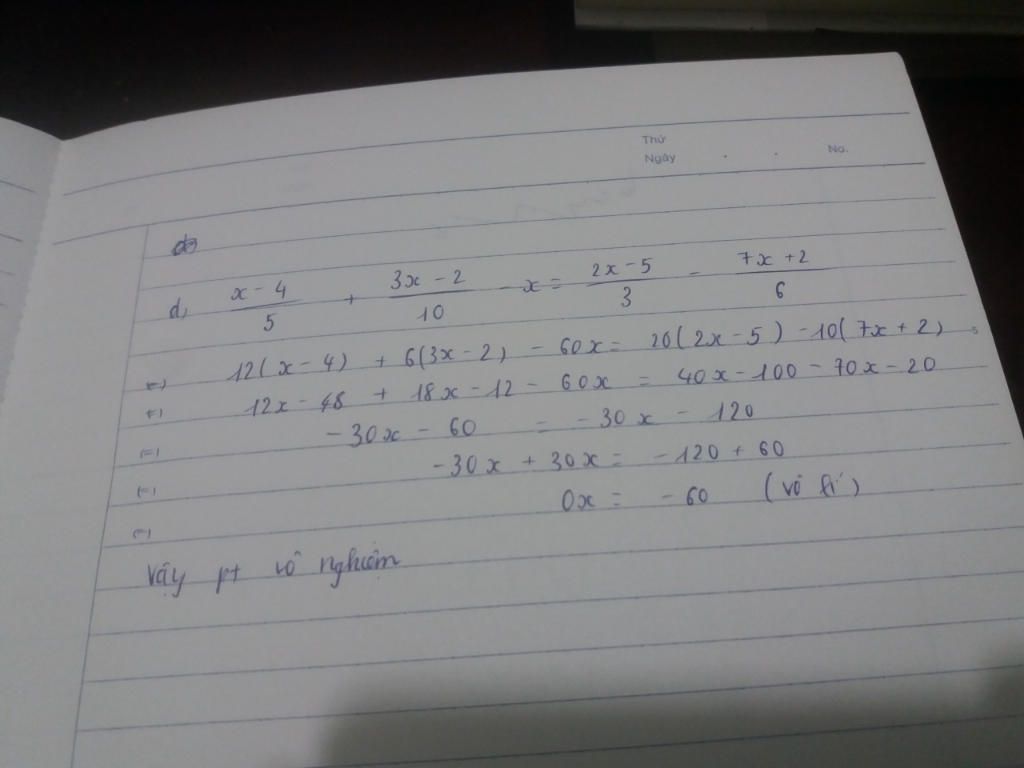 Thứ
Ngày . . No.
d, \frac{x-4}{5} + \frac{3x-2}{10} - x = \frac{2x-5}{3} - \frac{7x+2}{6}
(=) 12(x-4) + 6(3x-2) - 60x = 20(2x-5) - 10(7x+2)
(=) 12x - 48 + 18x - 12 - 60x = 40x - 100 - 70x - 20
(=) -30x - 60 = -30x - 120
(=) -30x + 30x = -120 + 60
(=) 0x = -60 (vô lí)
Vậy pt vô nghiệm